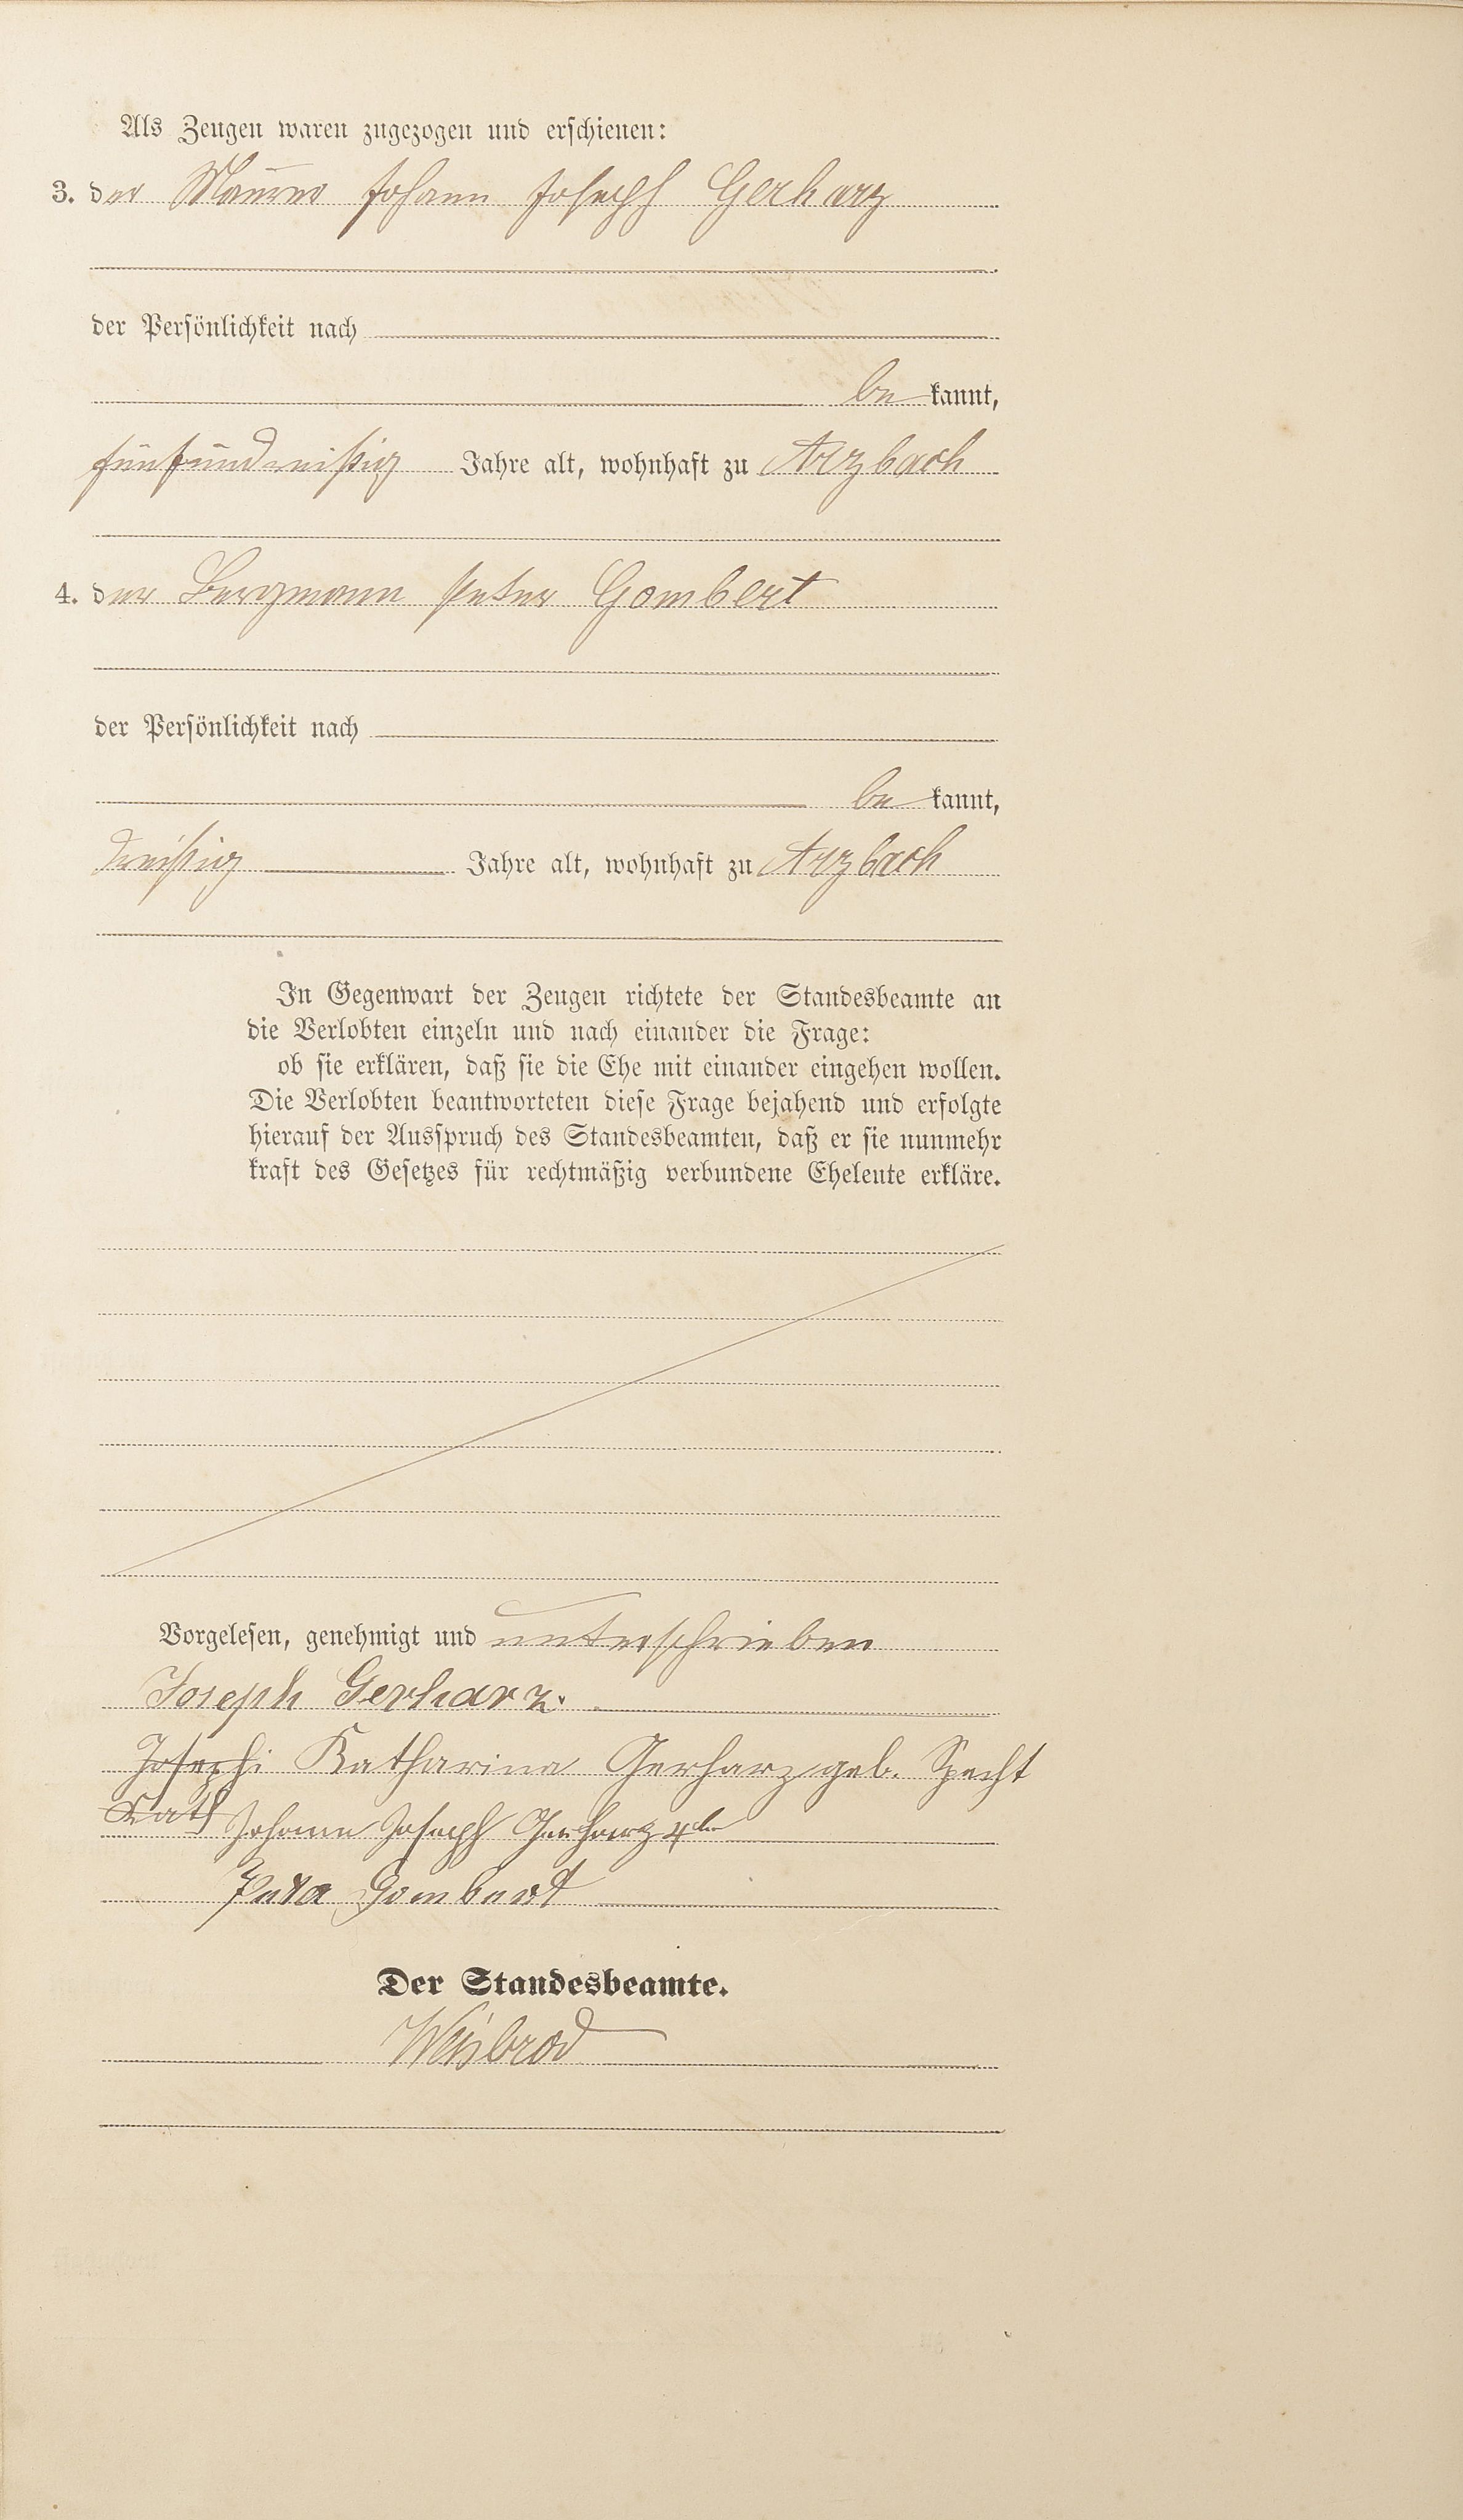 Als Zeugen waren zugezogen und erschienen:
3. der Maurer Johann Joseph Gerharz
der Persönlichkeit nach
be kannt,
fünfunddreißig Jahre alt, wohnhaft zu Arzbach
4. der Bergmann Peter Gombert
der Persönlichkeit nach
be kannt,
dreißig Jahre alt, wohnhaft zu Arzbach
In Gegenwart der Zeugen richtete der Standesbeamte an
die Verlobten einzeln und nach einander die Frage:
ob sie erklären, daß sie die Ehe mit einander eingehen wollen.
Die Verlobten beantworteten diese Frage bejahend und erfolgte
hierauf der Ausspruch des Standesbeamten, daß er sie nunmehr
kraft des Gesetzes für rechtmäßig verbundene Eheleute erkläre.
Vorgelesen, genehmigt und unterschrieben
Joseph Gerharz.
Katharina Gerharz geb. Specht
Kath
Johann Joseph Gerharz 4te
Peter Gombert
Der Standesbeamte.
Weisbrod